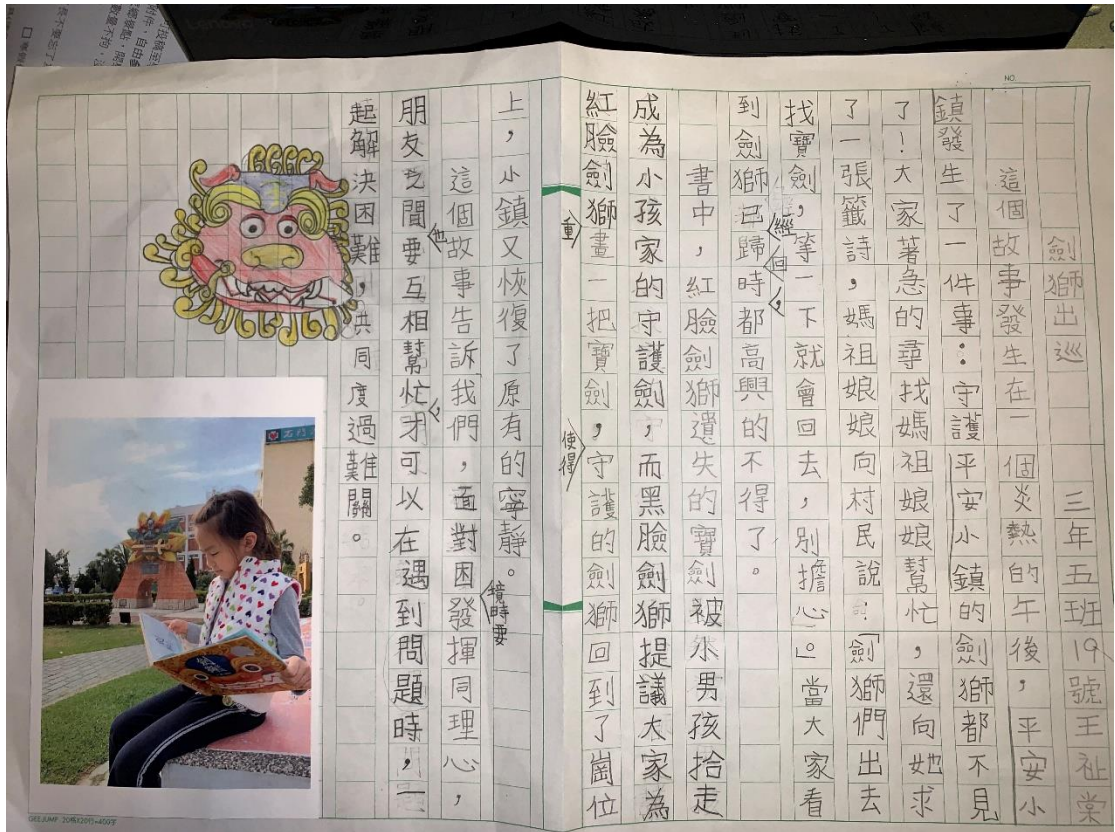 劍獅出巡 三年五班19號王祉棠
這個故事發生在一個炎熱的午後，平安小
鎮發生了一件事：守護平安小鎮的劍獅都不見
了！大家著急的尋找媽祖娘娘幫忙，還向她求
了一張籤詩，媽祖娘娘向村民說：「劍獅們出去
找寶劍，等一下就會回去，別擔心」。當大家看
到劍獅已經回歸時，都高興的不得了。
書中，紅臉劍獅遺失的寶劍被水男孩拾走
成為小孩家的守護劍，而黑臉劍獅提議大家為
紅臉劍獅重畫一把寶劍，使得守護的劍獅回到了崗位
上，小鎮又恢復了原有的寧靜。
這個故事告訴我們，面對困境時要發揮同理心，
朋友之間也要互相幫忙，才可以在遇到問題時，一
起解決困難，共同度過難關。
NO.
20行=400字